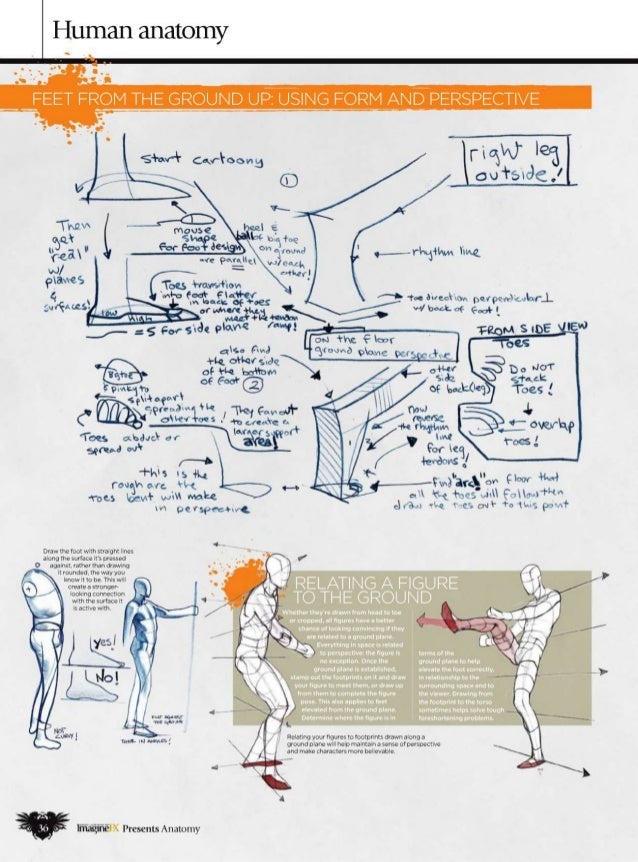 Human anatomy
FEET FROM THE GROUND UP: USING FORM AND PERSPECTIVE
start cartoony
1
right leg
outside!
Then
get
"real"
w/
planes
&
surfaces!
mouse
shape
for foot design
heel &
ball of big toe
on ground
are parallel w/each
other!
rhythm line
Toes transition
into foot flatter
in back of toes
or where they
meet the tendon
ramp!
Low
High
= 5 for side plane
toe direction perpendicular ⊥
w/ back of foot!
on the floor
ground plane perspective
FROM SIDE VIEW
Toes
Do NOT
stack
Toes!
overlap
toes!
also find
the other side
of the bottom
of foot 2
Big toe
& pinky to
split apart
spreading the
other toes!
They fan out
to create a
larger support
area!
Toes abduct or
spread out
other
side
of back (leg)
now
reverse
the rhythm
line
for leg
tendons!
this is the
rough arc the
toes bent will make
in perspective
find "arc!" on floor that
all the toes will follow then
draw the toes out to this point
Draw the foot with straight lines
along the surface it's pressed
against, rather than drawing
it rounded, the way you
know it to be. This will
create a stronger-
looking connection
with the surface it
is active with.
yes!
No!
NOT
CURVY!
FLAT AGAINST
THE GROUND
THINK IN ANGLES!
RELATING A FIGURE
TO THE GROUND
Whether they're drawn from head to toe
or cropped, all figures have a better
chance of looking convincing if they
are related to a ground plane.
Everything in space is related
to perspective; the figure is
no exception. Once the
ground plane is established,
stamp out the footprints on it and draw
your figure to meet them, or draw up
from them to complete the figure
pose. This also applies to feet
elevated from the ground plane.
Determine where the figure is in
terms of the
ground plane to help
elevate the foot correctly,
in relationship to the
surrounding space and to
the viewer. Drawing from
the footprint to the torso
sometimes helps solve tough
foreshortening problems.
Relating your figures to footprints drawn along a
ground plane will help maintain a sense of perspective
and make characters more believable.
36
ImagineFX Presents Anatomy